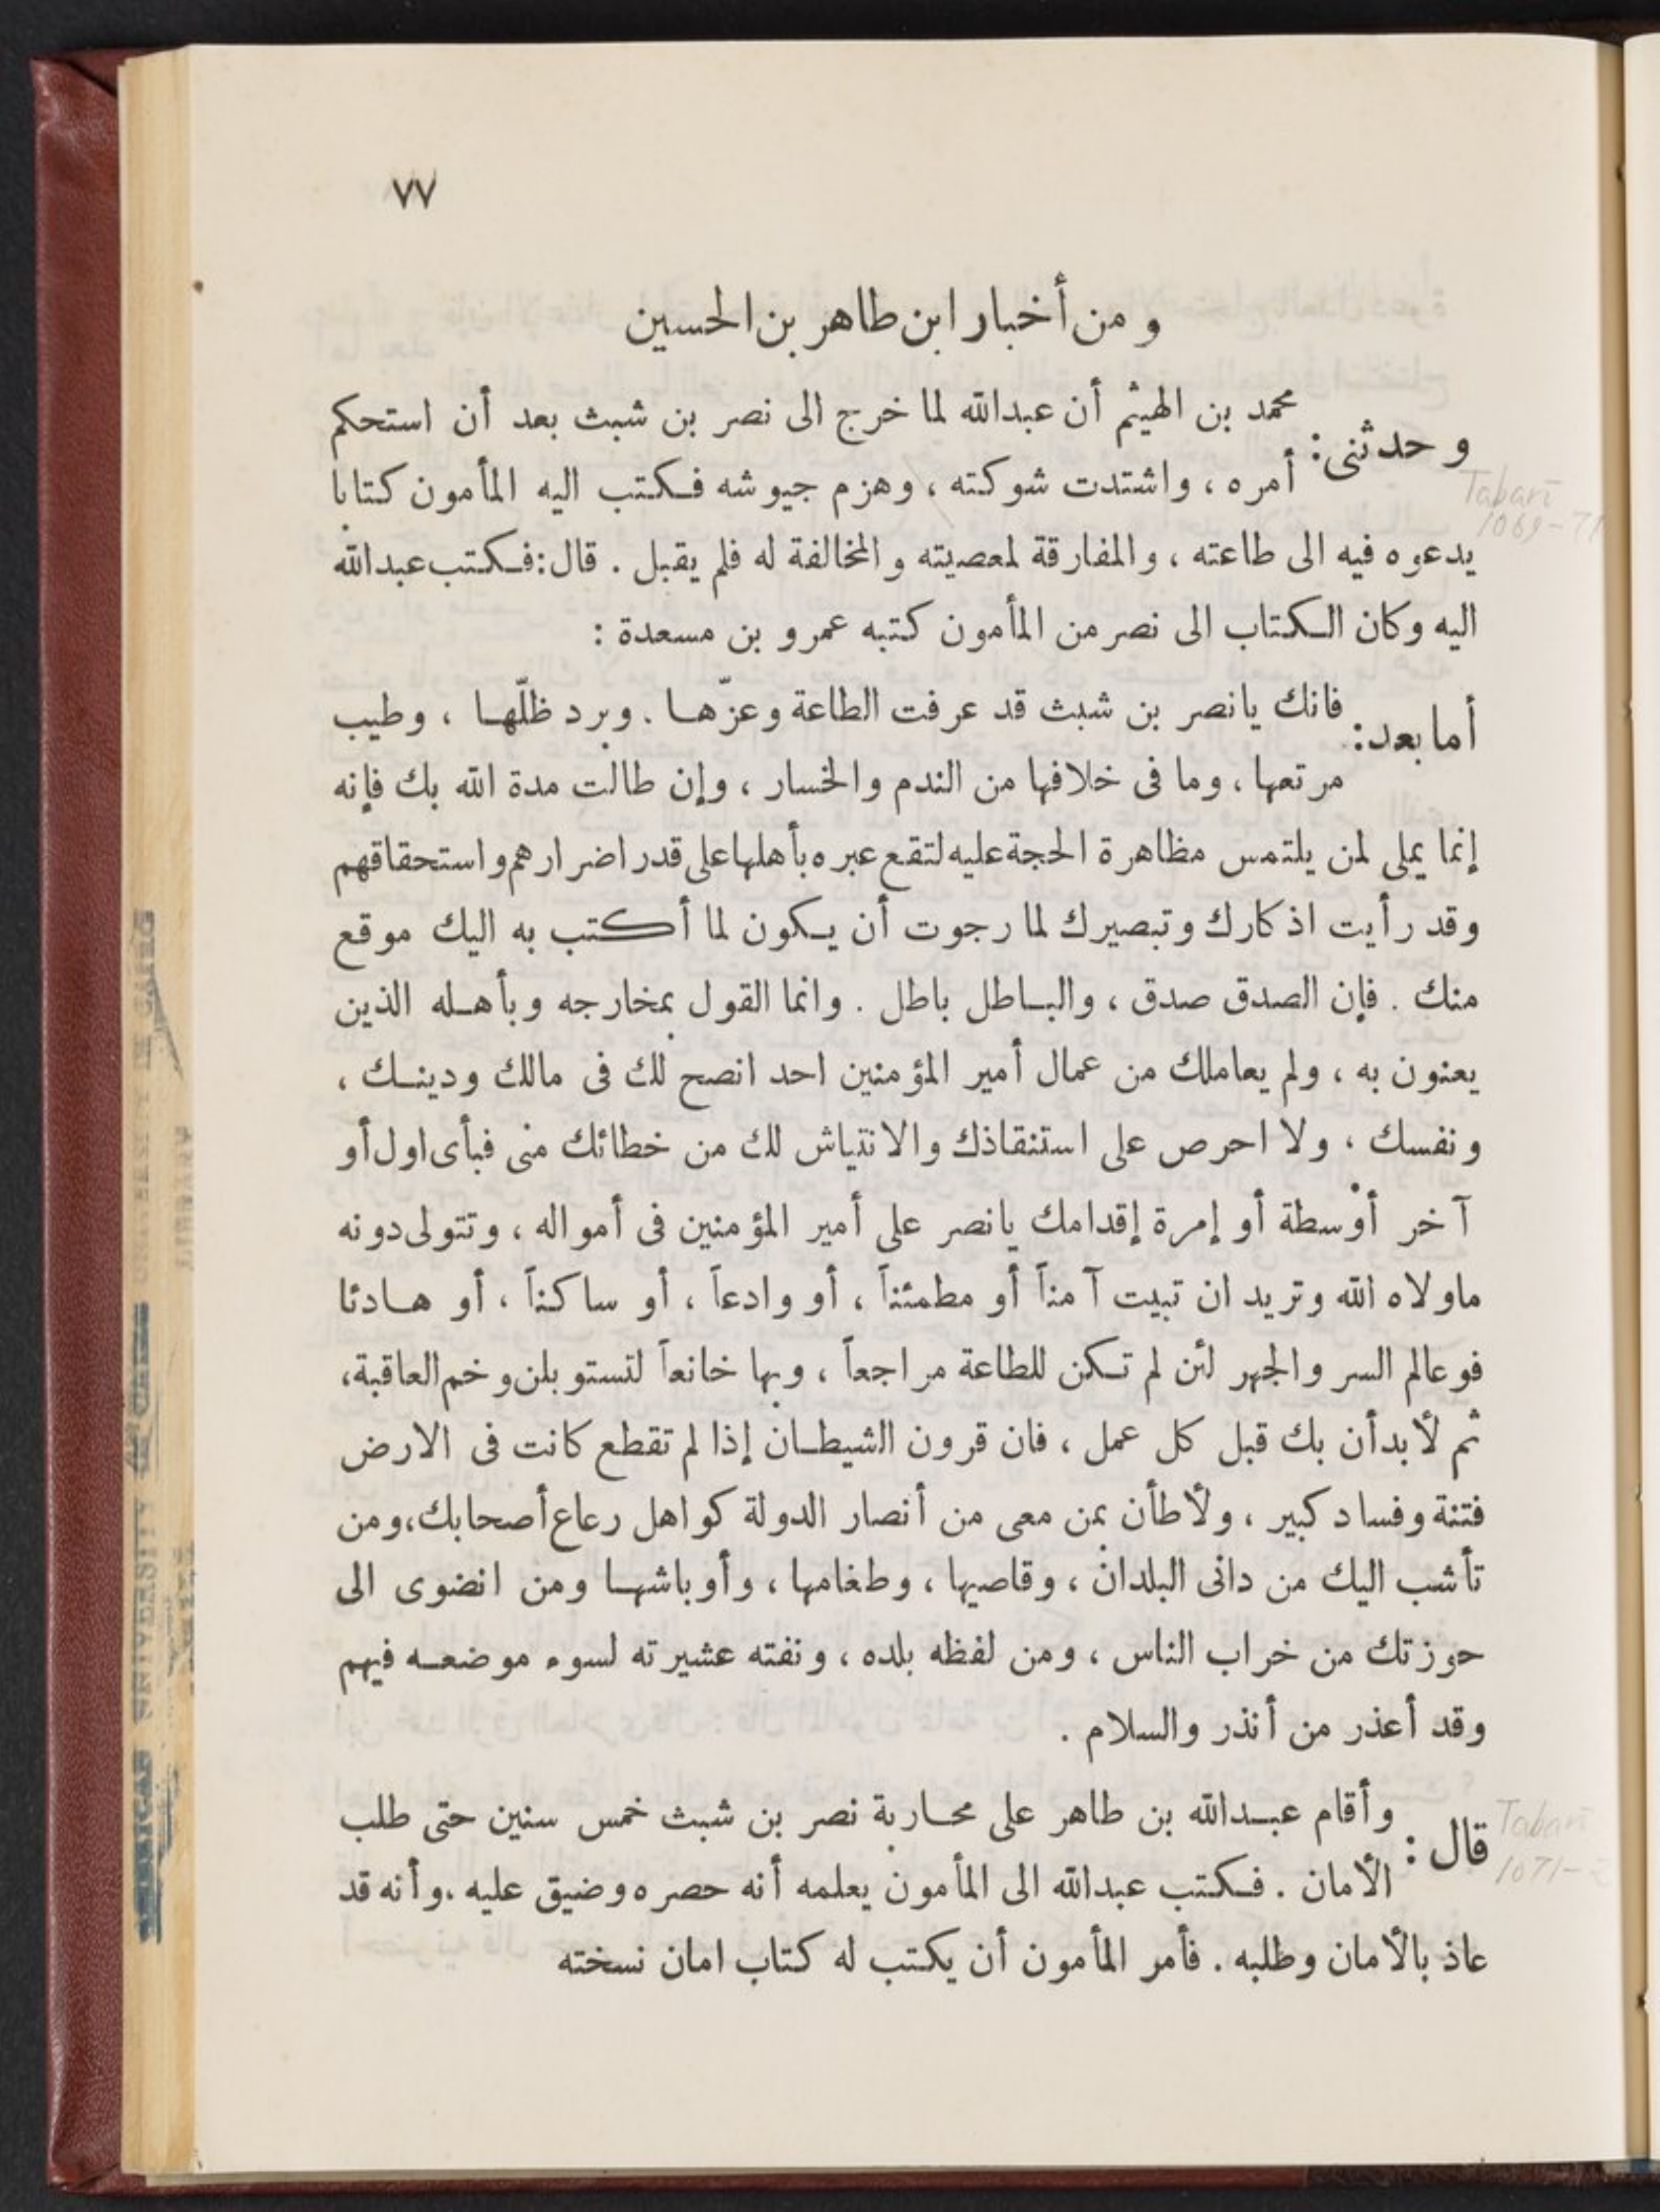 ٧٧
ومن أخبار ابن طاهر بن الحسين
وحدثنى: محمد بن الهيثم أن عبدالله لما خرج الى نصر بن شبث بعد أن استحكم
أمره ، واشتدت شوكته ، وهزم جيوشه فكتب اليه المأمون كتابا
Tabari
1069-71
يدعوه فيه الى طاعته ، والمفارقة لمعصيته والمخالفة له فلم يقبل . قال: فكتب عبدالله
اليه وكان الكتاب الى نصر من المأمون كتبه عمرو بن مسعدة :
أما بعد: فانك يانصر بن شبث قد عرفت الطاعة وعزّها . وبرد ظلّها ، وطيب
مرتعها ، وما فى خلافها من الندم والخسار ، وإن طالت مدة الله بك فإنه
إنما يملى لمن يلتمس مظاهرة الحجة عليه لتقع عبره بأهلها على قدر اضرارهم واستحقاقهم
وقد رأيت اذكارك وتبصيرك لما رجوت أن يكون لما أكتب به اليك موقع
منك . فإن الصدق صدق ، والباطل باطل . وانما القول بمخارجه وبأهله الذين
يعنون به ، ولم يعاملك من عمال أمير المؤمنين احد انصح لك فى مالك ودينك ،
ونفسك ، ولا احرص على استنقاذك والانتياش لك من خطائك منى فبأى اول أو
آخر أوْسطة أو إمرة إقدامك يانصر على أمير المؤمنين فى أمواله ، وتتولى دونه
ماولاه الله وتريد ان تبيت آمناً أو مطمئناً ، أو وادعاً ، أو ساكناً ، أو هادئا
فوعالم السر والجهر لئن لم تكن للطاعة مراجعاً ، وبها خانعاً لتستوبلن وخم العاقبة،
ثم لأبدأن بك قبل كل عمل ، فان قرون الشيطان إذا لم تقطع كانت فى الارض
فتنة وفساد كبير ، ولأطأن بمن معى من أنصار الدولة كواهل رعاع أصحابك، ومن
تأشب اليك من دانى البلدان ، وقاصيها ، وطغامها ، وأوباشها ومن انضوى الى
حوزتك من خراب الناس ، ومن لفظه بلده ، ونفته عشيرته لسوء موضعه فيهم
وقد أعذر من أنذر والسلام .
قال : وأقام عبدالله بن طاهر على محاربة نصر بن شبث خمس سنين حتى طلب
الأمان . فكتب عبدالله الى المأمون يعلمه أنه حصره وضيق عليه ، وأنه قد
Tabari
عاذ بالأمان وطلبه . فأمر المأمون أن يكتب له كتاب امان نسخته